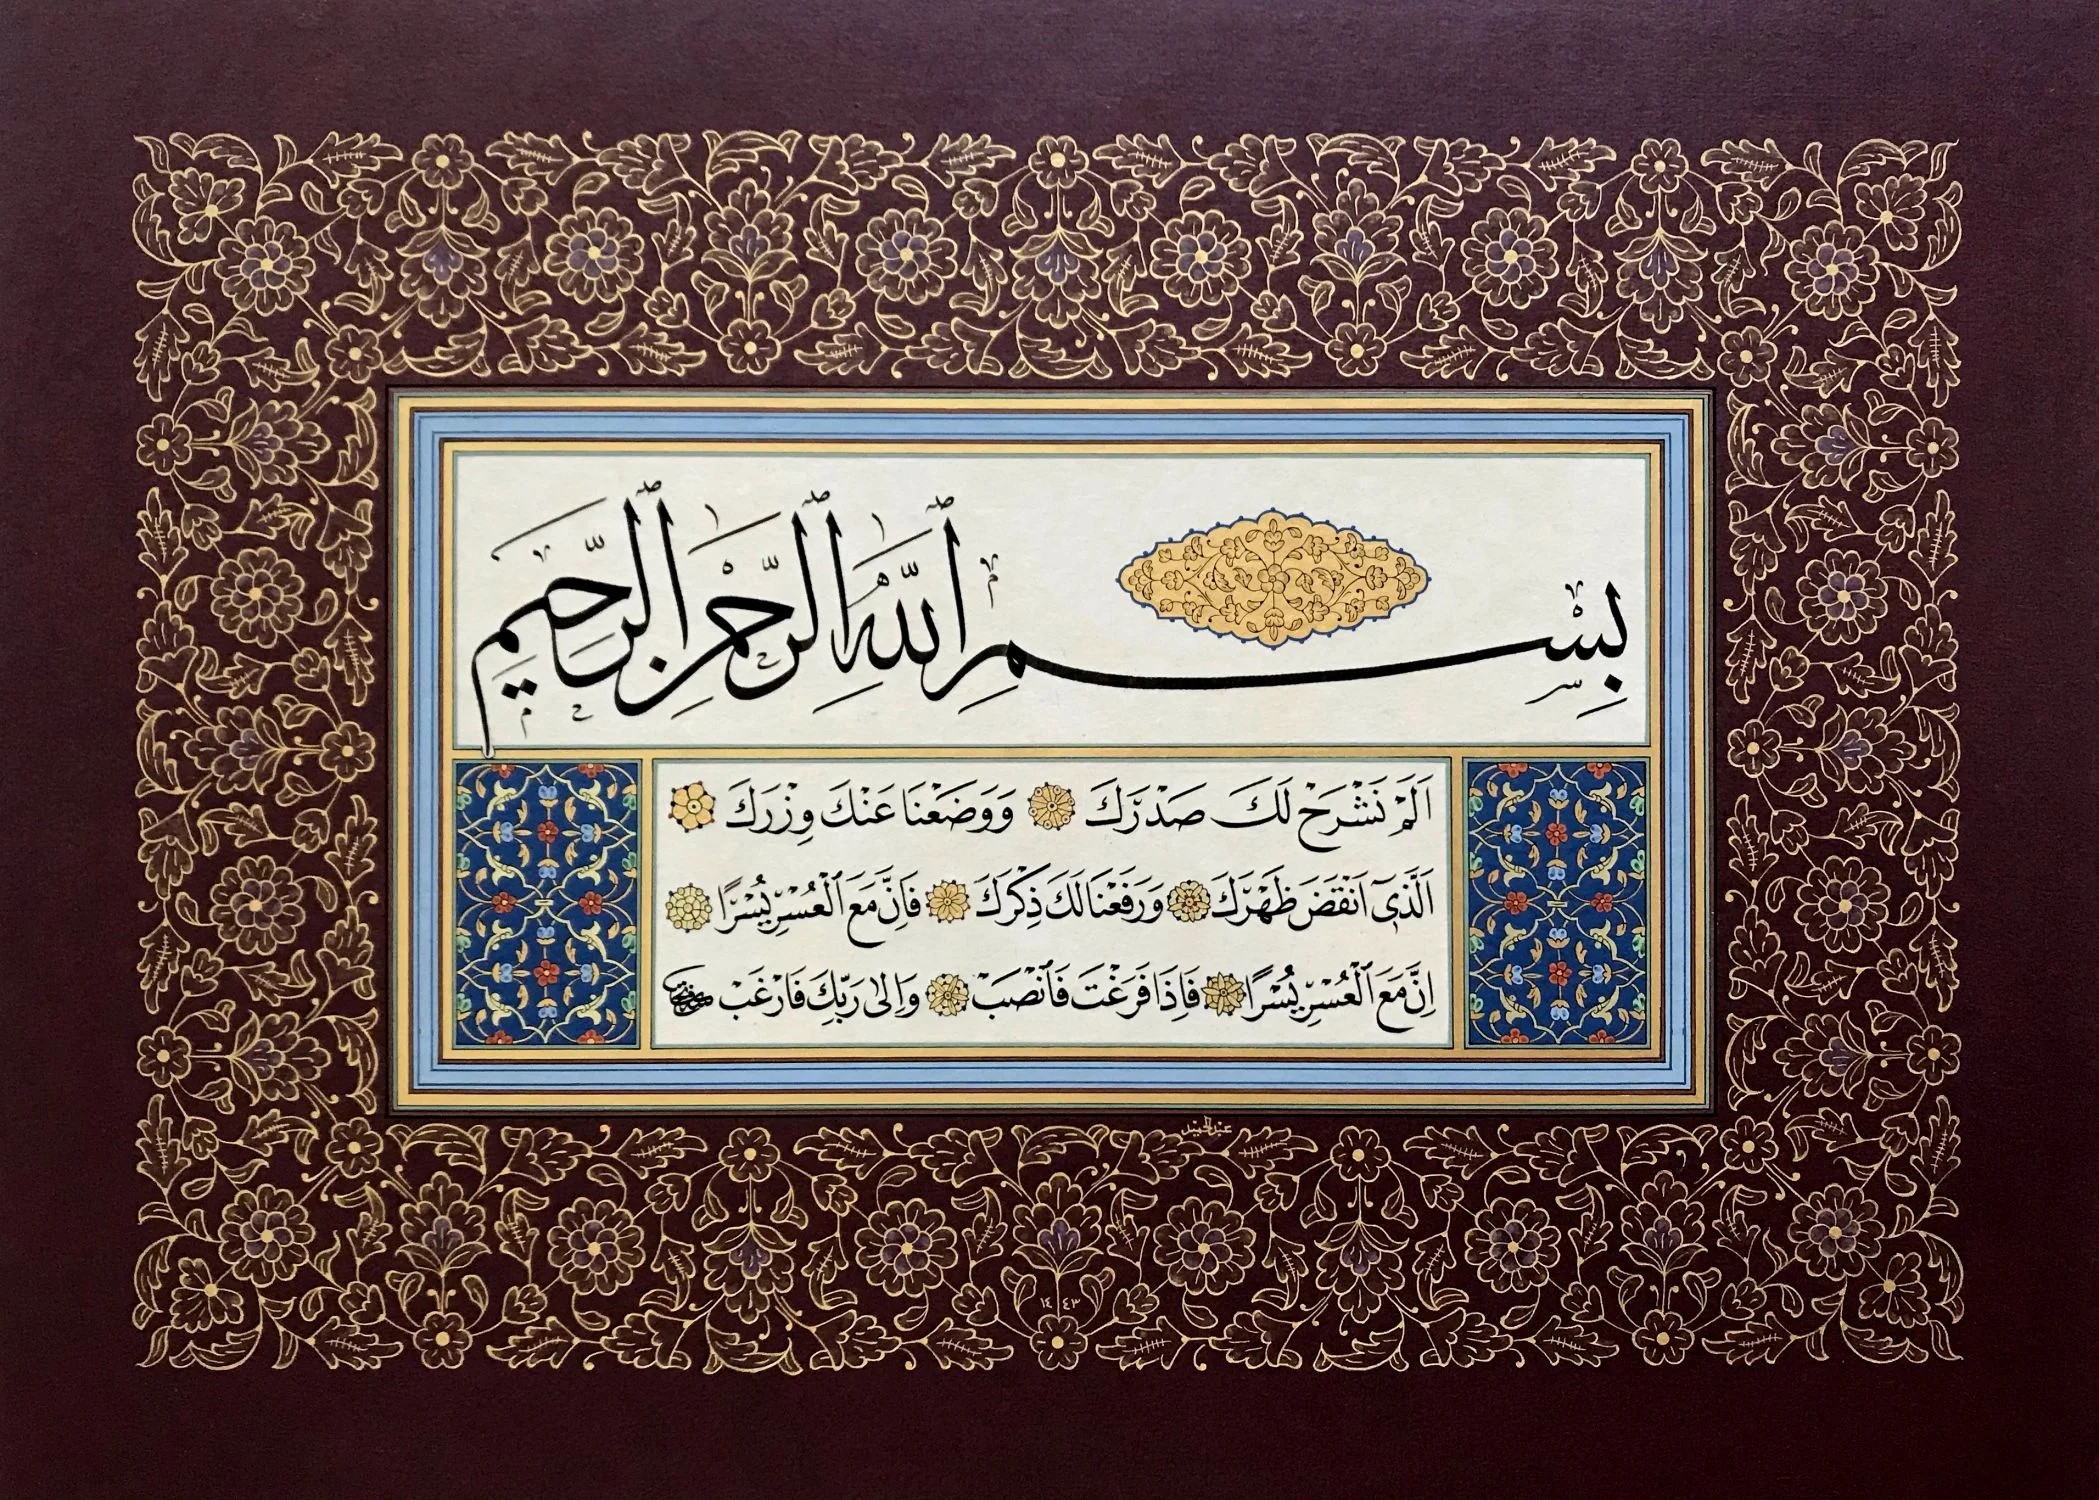 بِسْمِ ٱللّٰهِ ٱلرَّحْمٰنِ ٱلرَّحِيمِ
اَلَمْ نَشْرَحْ لَكَ صَدْرَكَ وَوَضَعْنَا عَنْكَ وِزْرَكَ
اَلَّذٖٓى اَنْقَضَ ظَهْرَكَ وَرَفَعْنَا لَكَ ذِكْرَكَ فَاِنَّ مَعَ الْعُسْرِ يُسْرًا
اِنَّ مَعَ الْعُسْرِ يُسْرًا فَاِذَا فَرَغْتَ فَانْصَبْ وَاِلٰى رَبِّكَ فَارْغَبْ
١٤٤٣